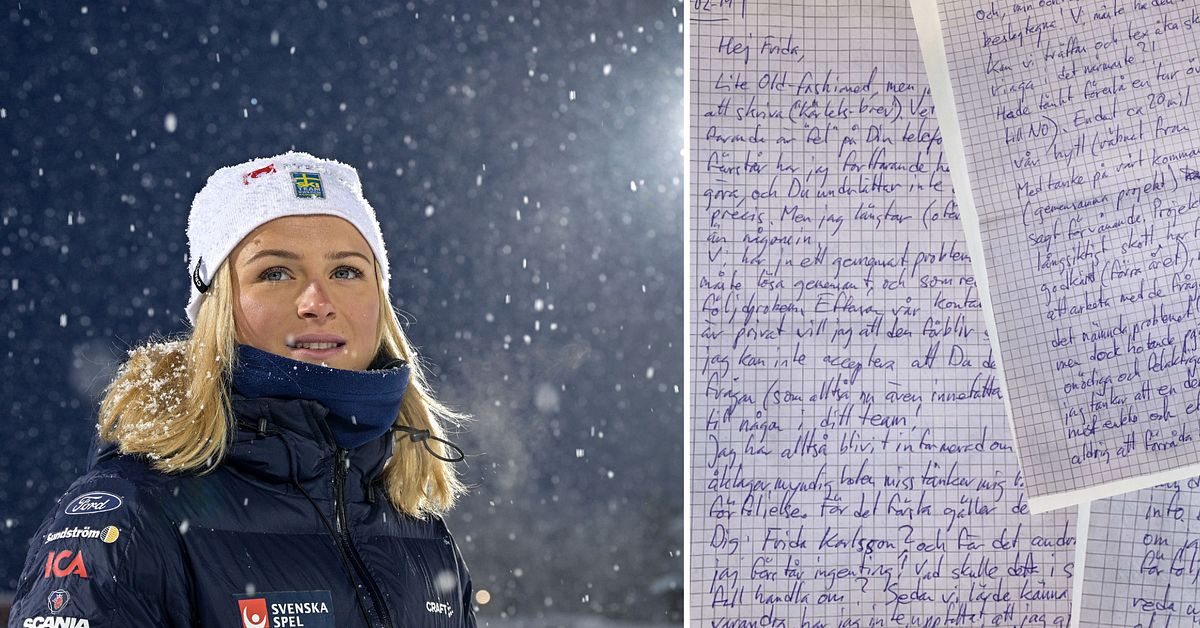 SKI
TEAM
Ford
Sundström
ICA
SCANIA
SVENSKA
SPEL
CRAFT
02-19
Hej Frida,
Lite Old-fashioned, men j
att skriva (kärleks-brev). Ve
varandra av "fel" på Din telef
förstår har jag fortfarande
göra, och Du underlättar inte
precis. Men jag längtar
än någonsin
Vi har ju ett gemensamt problem
måste lösa gemensamt, och som
följdproblem. Eftersom vår konta
är privat vill jag att den förblir s
jag kan inte acceptera att Du de
frågan (som alltså nu även innefatta
till några i ditt team!
Jag har alltså blivit informerad om
åklagarmyndigheten misstänker mig
förföljelse. För det första gäller de
Dig: Frida Karlsson? och för det andr
jag förstår ingenting! Vad skulle detta i s
fall handla om? Sedan vi lärde känna
varandra har jag inte uppfattat att jag
Och, min och
besegra Vi måste ha den
Kan vi träffas och tex åka sk
i det närmaste?!
Hade tänkt föreslå en tur öv
till NO). Endast ca 20 mil
vår hytt
Med tanke på vårt komman
(gemensamma projekt)
sagt förvånande. Projek
långsiktigt skott har
godkänt (förra året),
att arbeta med de fråg
det nämnda problemet
men dock hotande
onödiga och
jag tänker att en de
mest enkla och e
aldrig att förråda
info.
om jg
förföl
reda u